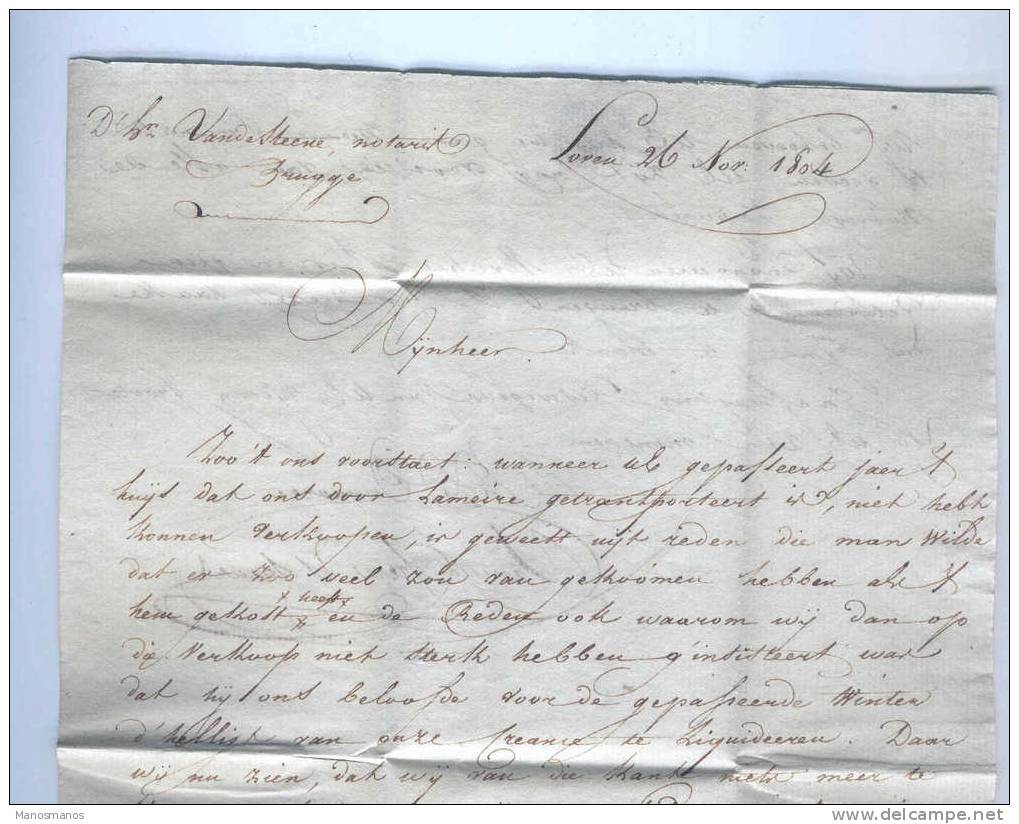 Dr. hr. VandeSteene, notaris
Brugge
Loven 26 Nov: 1804
Mijnheer.
Zoo't ons voorstaet: wanneer ul: gepasseert jaer 't
huijs dat ons door Lameire getransporteert is, niet hebt
konnen Verkoopen, is geweest uijt reden die man Wilde
dat er zoo veel zou van gekoomen hebben als 't
x heeft x
hem gekost x en de Reden ook waarom wij dan op
die Verkoop niet sterk hebben g'insisteert was
dat hij ons beloofde voor de gepasseerde Winter
d'hellist van onze Creance te Liquideeren. Daar
wij nu zien, dat wij van die kant niets meer te
Manosmanos
delcampe.net